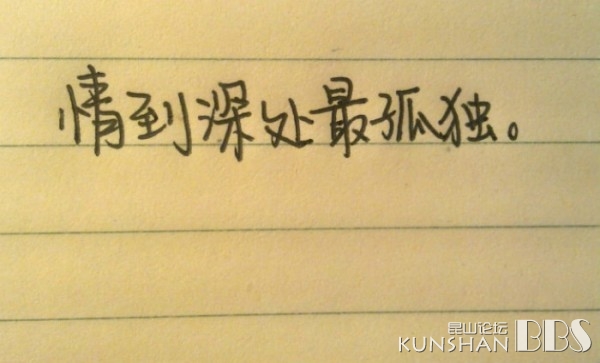 情到深处最孤独。
昆山论坛
KUNSHAN BBS